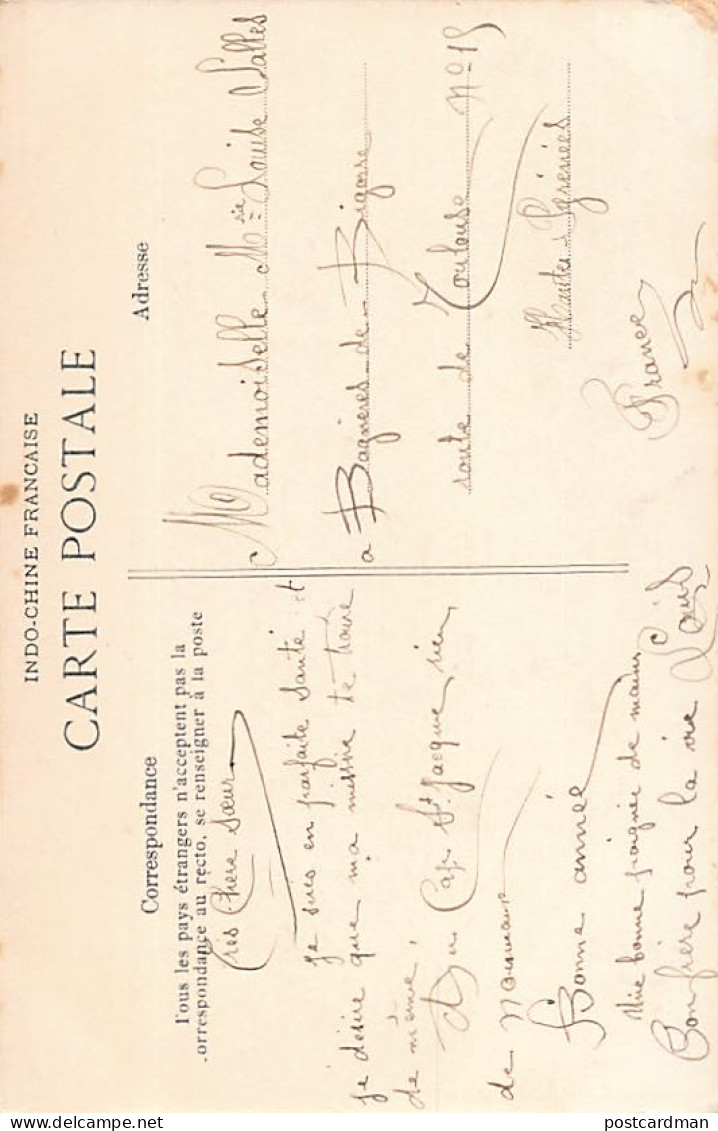 INDO-CHINE FRANÇAISE
CARTE POSTALE
Correspondance
Tous les pays étrangers n'acceptent pas la
correspondance au recto, se renseigner à la poste
Très Chère Sœur
Je suis en parfaite Santé et
je désire que ma missive te trouve
de même.
Du Cap St. Jacque, rien
de Nouveaux
Bonne année
Une bonne poignée de mains
Ton frère pour la vie Louis
Adresse
Mademoiselle Mrie Louise Salles
a Bagnères-de-Bigorre
route de Toulouse No 15
Hautes-Pyrénées
France
postcardman